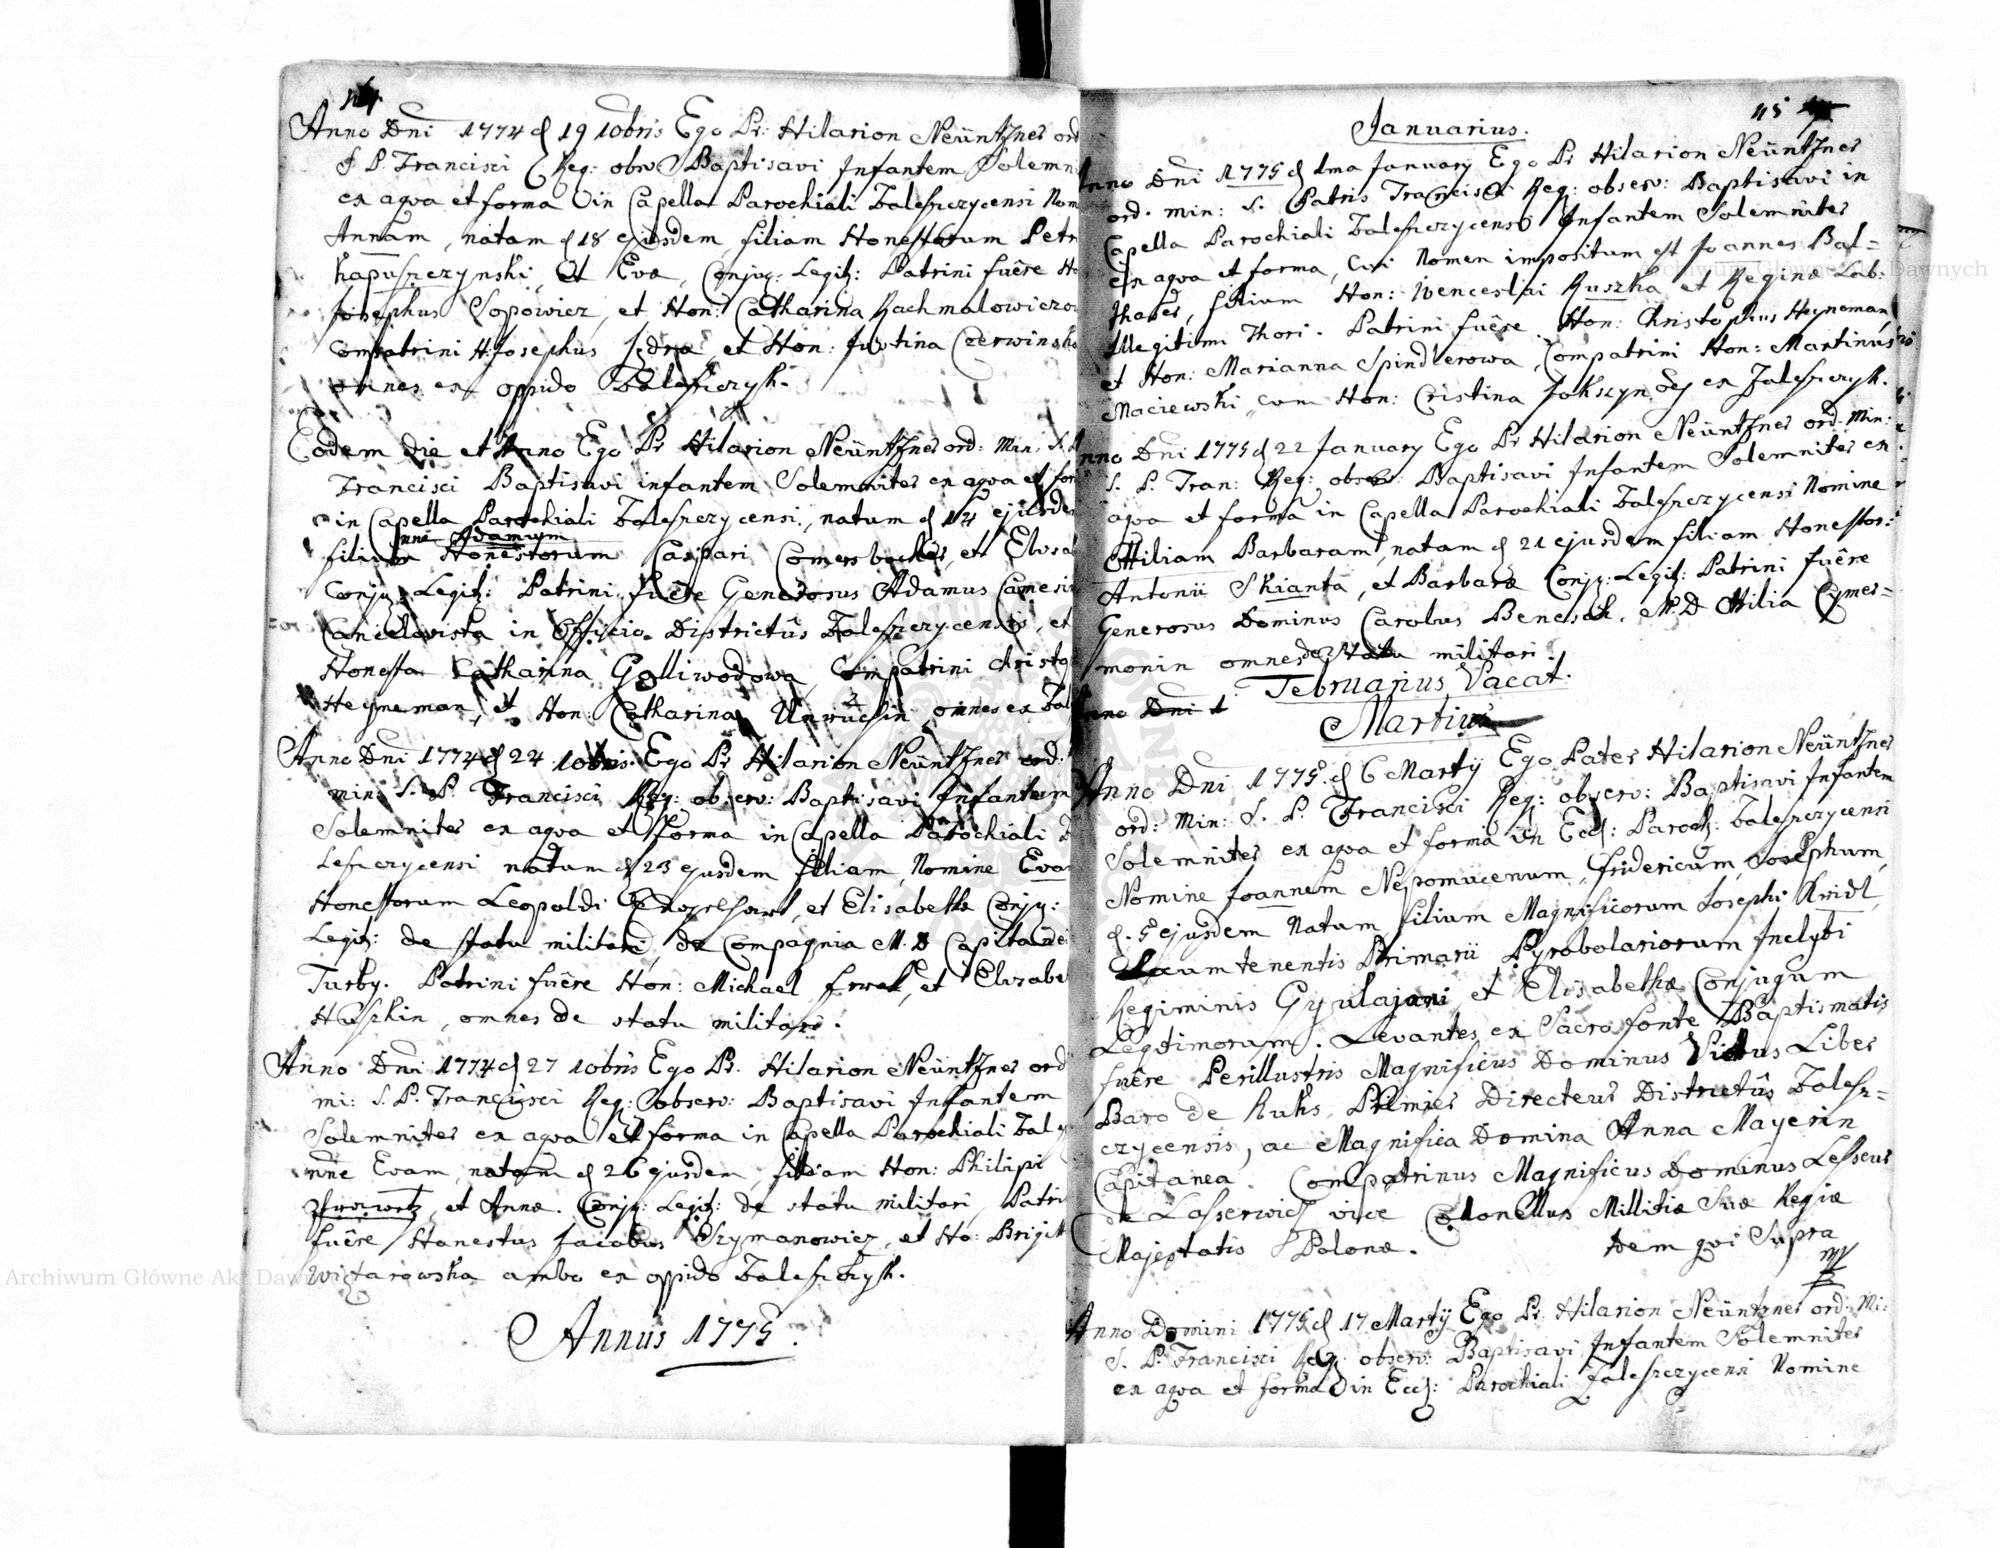 Anno Dni 1774 d 19 10bris Ego Pr: Hilarion Neüntzner ord
S. P. Francisci Reg: obser Baptisavi Infantem Solemni
ex aqva et forma in Capella Parochiali Zaleszczycensi Nom
Annam, natam d 18 ejusdem, filiam Honestorum Petr
Kapuszczynski, et Evæ, Conjug: Legit: Patrini fuêre Ho
Josephus Popowicz, et Hon: Catharina Rachmalowiczow
Compatrini H: Josephus et Hon: Justina Czerwinska
omnes ex oppido Zaleszczyk.
Eodem die et Anno Ego Pr Hilarion Neüntzner ord: Min: S. P
Francisci Baptisavi infantem Solemniter ex aqva et for
in Capella Parochiali Zaleszczycensi, natum d 14 ejusde
nne Adamum
filium Honestorum Caspari Comersbacher, et Elisab
Conjug: Legit: Patrini fuêre Generosus Adamus
Cancelarista in Officio Districtûs Zaleszczycensis, et
Honesta Catharina Golliwodowa, Compatrini Christop
Heyneman, et Hon: Catharina omnes ex Zal
Anno Dni 1774 d 24 10bris Ego Pr Hilarion Neüntzner ord:
min: S. P. Francisci Reg: observ: Baptisavi Infantem
Solemniter ex aqva et forma in Capella Parochiali Z
leszczycensi natam d 23 ejusdem filiam, Nomine Evam
Honestorum Leopoldi et Elisabethæ Conju:
Legit: de statu militari, de Compagnia M. D Capitanei
Turby. Patrini fuêre Hon: Michael et Elisabe
Huszkin, omnes de statu militari.
Anno Dni 1774 d 27 10bris Ego Pr. Hilarion Neüntzner ord
mi: S. P. Francisci Reg: observ: Baptisavi Infantem
Solemniter ex aqva et forma in Capella Parochiali Zal
nne Evam, natam d 26 ejusdem, filiam Hon: Philipi
et Annæ. Conju: Legit: de statu militari, Patri
fuêre Honestus Jacobus Szymanowicz, et Ho: Brigitt
Wistarowska ambo ex oppido Zaleszczyk.
Annus 1775.
45
Januarius.
Anno Dni 1775 d 1ma January Ego Pr Hilarion Neüntzner
ord. min: S. Patris Francisci Reg: observ: Baptisavi in
Capella Parochiali Zaleszczycensi Infantem Solemniter
ex aqva et forma, Cui Nomen impositum est Joannes Bal=
thaser, filium Hon: Wenceslai Ruszka et Reginæ Lab:
Illegitimi Thori. Patrini fuêre Hon: Christophus Heyneman,
et Hon: Marianna Spindlerowa, Compatrini Hon: Martinus
Maciewski, cum Hon: Cristina ex Zaleszczyk.
Anno Dni 1775 d 22 January Ego Pr Hilarion Neüntzner ord. Min:
S. P. Fran: Reg: observ: Baptisavi Infantem Solemniter ex
aqva et forma in Capella Parochiali Zaleszczycensi Nomine
Ottiliam Barbaram, natam d 21 ejusdem filiam Honestor:
Antonii Skianta, et Barbaræ Conju: Legit: Patrini fuêre
Generosus Dominus Carolus Benesch, M. D Ottilia Cymer=
monin omnes de statu militari.
Februarius Vacat.
Anno Dni 1
Martius
Anno Dni 1775 d 6 Marty Ego Pater Hilarion Neüntzner
ord: Min: S. P. Francisci Reg: observ: Baptisavi Infantem
Solemniter ex aqva et forma in Eccl: Paroch: Zaleszczycensi
Nomine Joannem Nepomucenum, Fridericum, Josephum,
d. 5 ejusdem Natum, filium Magnificorum Josephi Kridl,
Locumtenentis Primarii Pyrobolariorum Inclyti
Regiminis Gyulajani, et Elisabethæ Conjugum
Legitimorum. Levantes ex Sacro fonte Baptismatis
fuêre Perillustris Magnificus Dominus Liber
Baro de Kuhs, Premier Directeur Districtûs Zalesz=
czycensis, ac Magnifica Domina Anna Mayerin
Capitanea. Compatrinus Magnificus Dominus Lesseur
de Lasserwich vice Colonellus Millitiæ Suæ Regiæ
Majestatis Polonæ. Idem qvi Supra
mp
Anno Domini 1775 d 17 Marty Ego Pr. Hilarion Neüntzner ord: Mi:
S. P. Francisci Reg: observ: Baptisavi Infantem Solemniter
ex aqva et forma in Eccl: Parochiali Zaleszczycensi Nomine
Archiwum Główne Akt Dawnych
Archiwum Główne Akt Dawnych